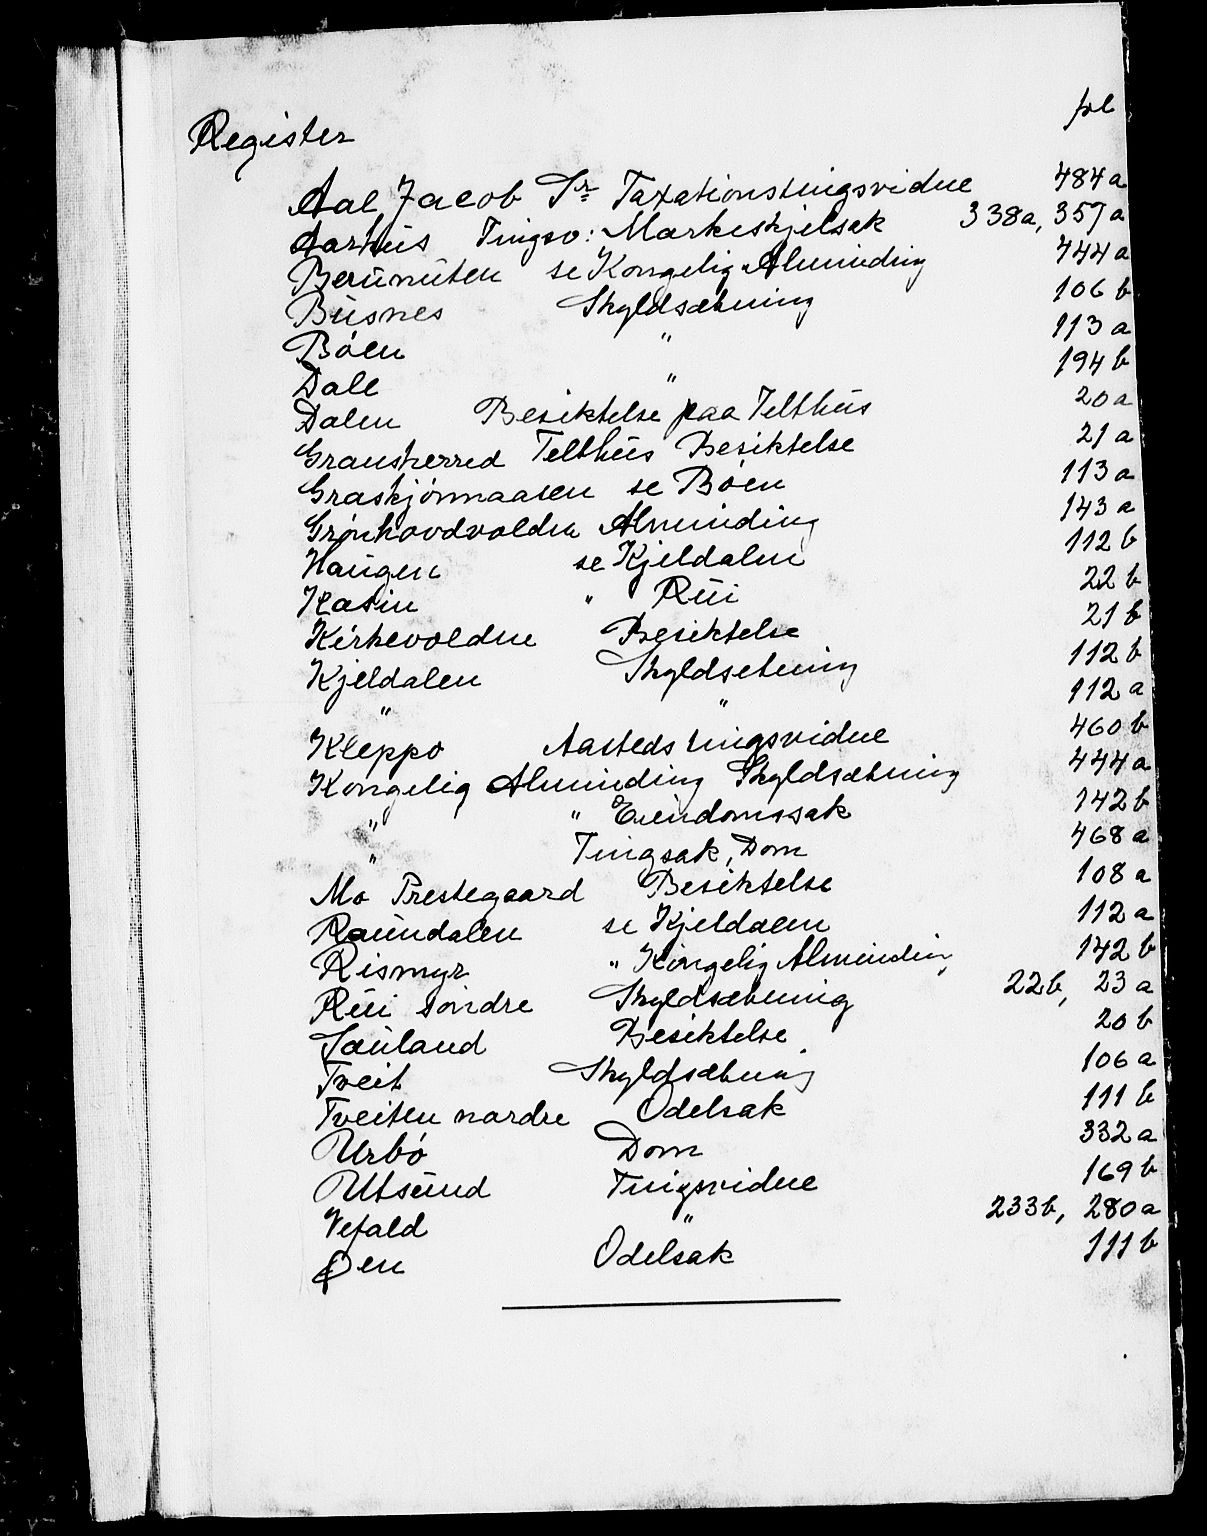 Register fol
Aal, Jacob Sr Taxationstingsvidne 484a
Aarhus Tingsv: Markeskjelsak 338a, 357a
Berunuten se Kongelig Alminding 444a
Busnes Skyldsætning 106b
Böen " 113a
Dale " 194b
Dalen Besiktelse paa Telthus 20a
Gransherred Telthus Besiktelse 21a
Graskjönmaasen se Böen 113a
Grönhovdvoldne Alminding 143a
Haugen se Kjeldalen 112b
Kasin " Rui 22b
Kirkevoldne Besiktelse 21b
Kjeldalen Skyldsetning 112b
" " 112a
Kleppo Aastedstingsvidne 460b
Kongelig Alminding Skyldsætning 444a
" " Eiendomssak 142b
" Tingsak, Dom 468a
Mo Prestegaard Besiktelse 108a
Raundalen se Kjeldalen 112a
Rismyr " Kongelig Alminding 142b
Rui söndre Skyldsætning 22b, 23a
Sauland Besiktelse 20b
Tveit Skyldsætning 106a
Tveiten nordre Odelsak 111b
Urbö Dom 332a
Utsund Tingsvidne 169b
Vefald " 233b, 280a
Øen Odelsak 111b